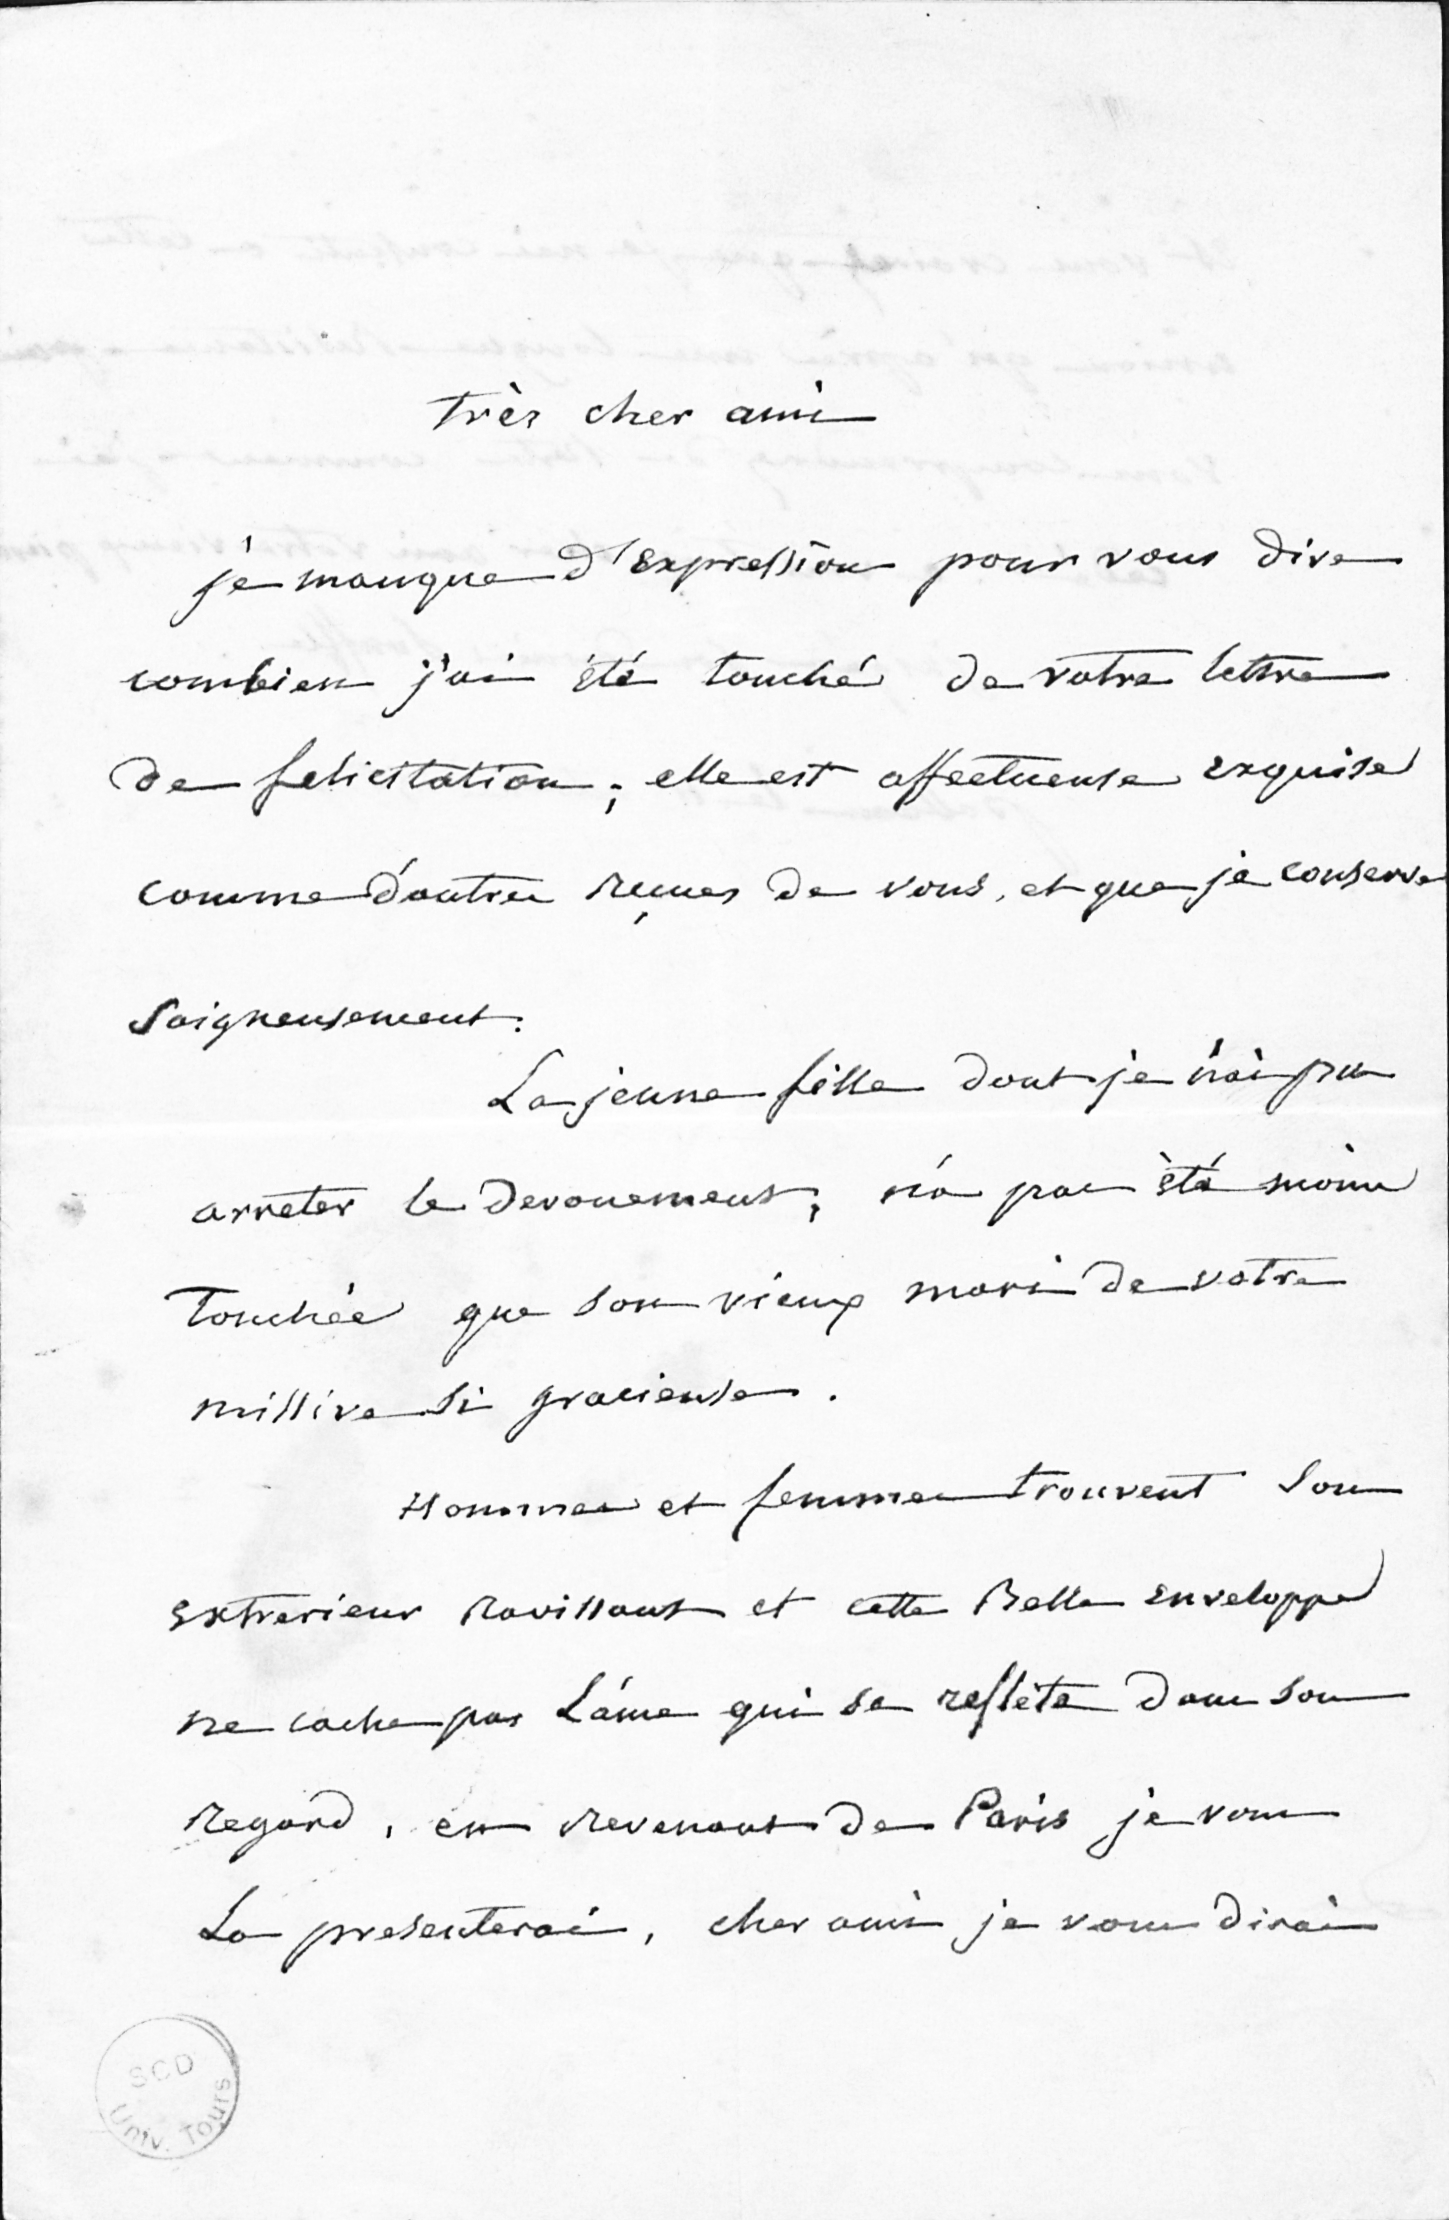 très cher ami
je manque d'Expression pour vous dire
combien j'ai été touché de votre lettre
de felicitation ; elle est affectueuse exquise
comme d'autres reçues de vous, et que je conserve
soigneusement.
La jeune fille dont je n'ai pu
arreter le devouement, n'a pas été moins
Touchée que son vieux mari de votre
missive si gracieuse.
Hommes et femmes trouvent son
extrerieur ravissant et cette Belle enveloppe
ne cache pas L'áme qui se reflète dans son
regard, en revenant de Paris je vous
La presenterai, cher ami je vous dirai
SCD
Univ. Tours